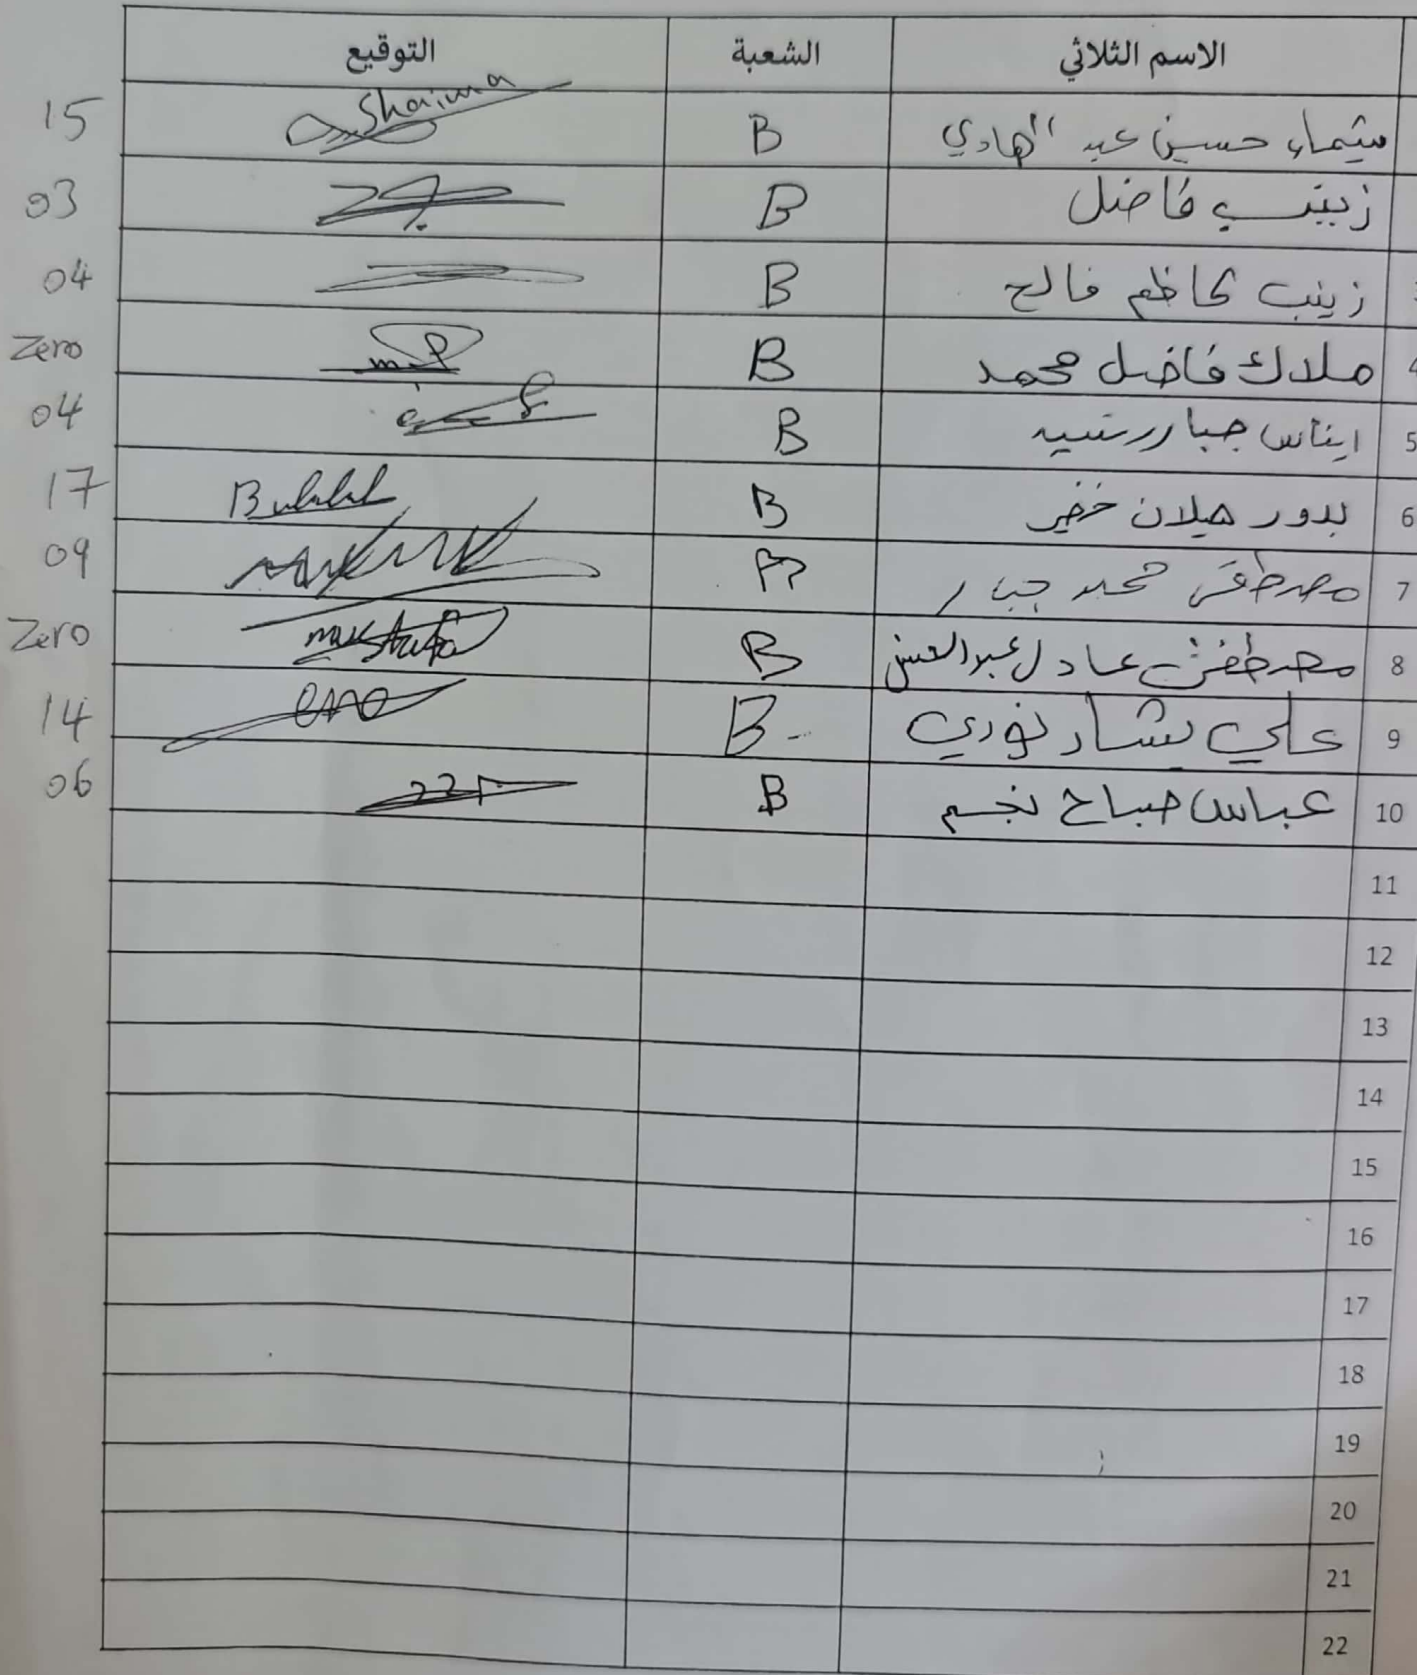 الاسم الثلاثي الشعبة التوقيع
شيماء حسين عبد الهادي B Shaima 15
زينب فاضل B 03
زينب كاظم فالح B 04
4 ملاك فاضل محمد B Zero
5 ايناس جبار رشيد B 04
6 بدور هيلان خضير B 17
7 مصطفى محمد جبار B 09
8 مصطفى عادل عبد الحسن B mustafa Zero
9 علي بشار نوري B 14
10 عباس صباح نجم B 06
11
12
13
14
15
16
17
18
19
20
21
22